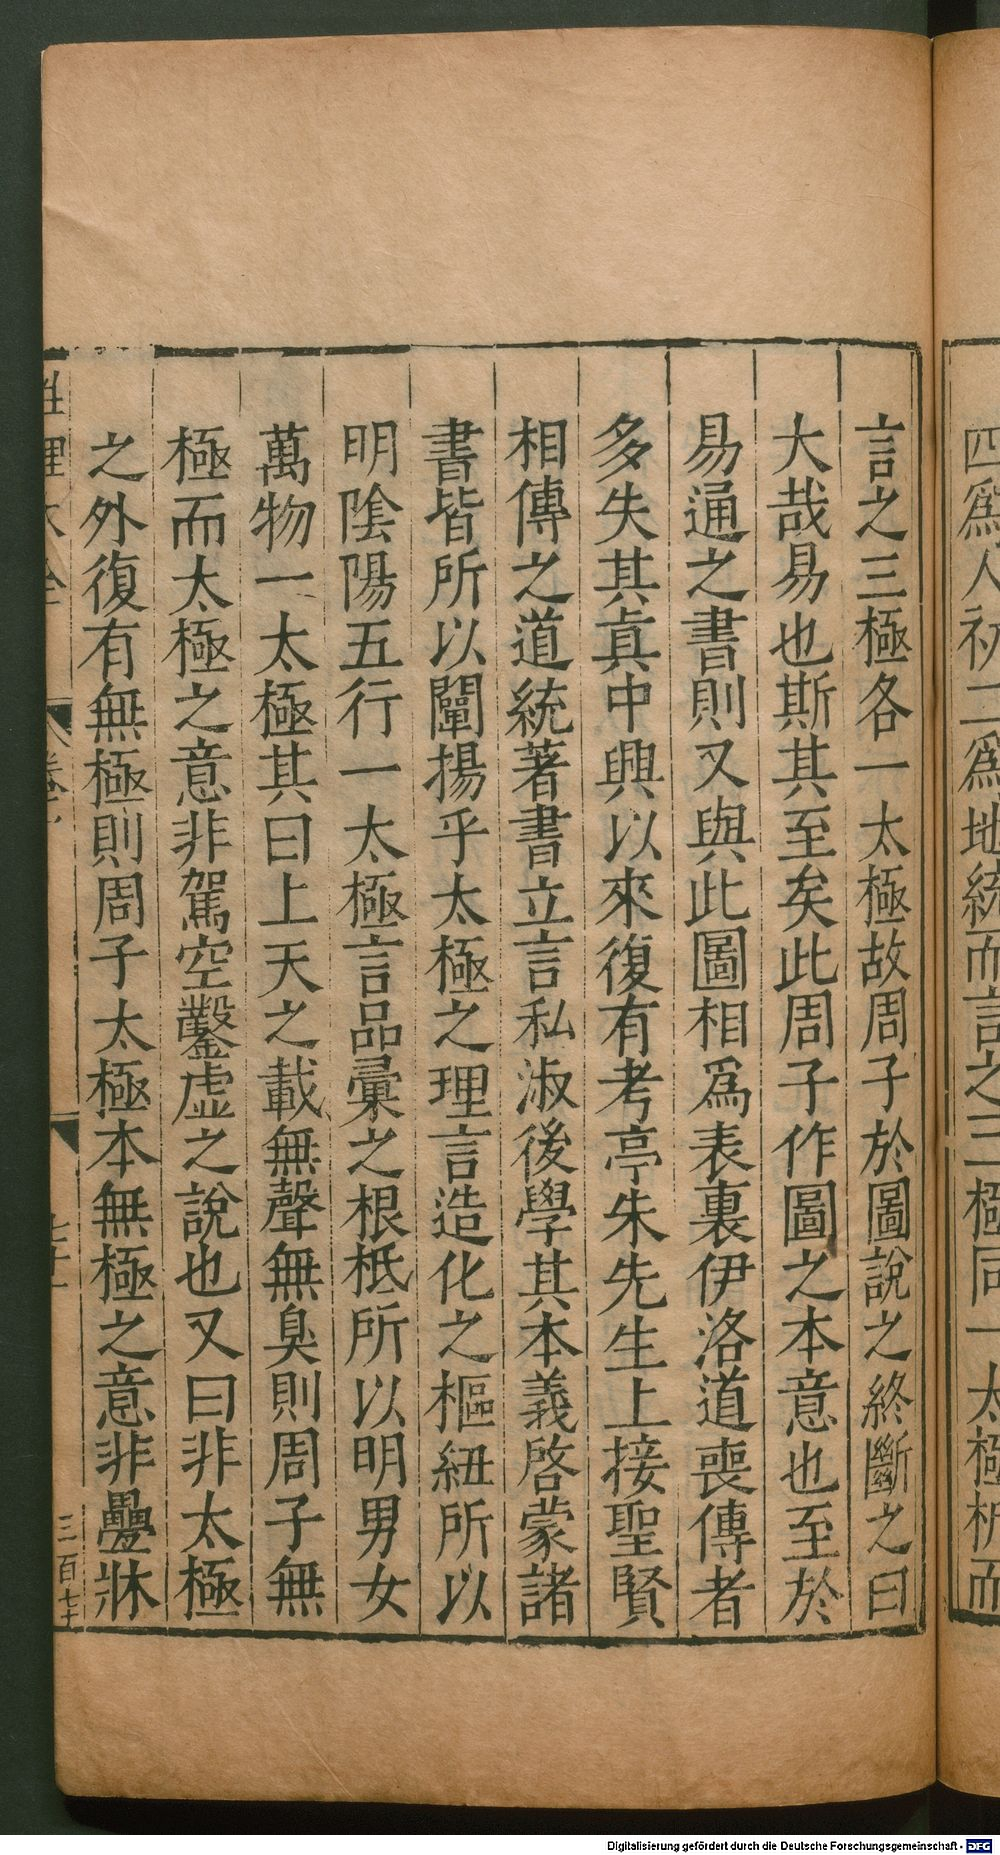 四爲人初二爲地統而言之三極同一太極析而
言之三極各一太極故周子於圖說之終斷之曰
大哉易也斯其至矣此周子作圖之本意也至於
易通之書則又與此圖相爲表裏伊洛道喪傳者
多失其眞中興以來復有考亭朱先生上接聖賢
相傳之道統著書立言私淑後學其本義啓蒙諸
書皆所以闡揚乎太極之理言造化之樞紐所以
明陰陽五行一太極言品彙之根柢所以明男女
萬物一太極其曰上天之載無聲無臭則周子無
極而太極之意非駕空鑿虛之說也又曰非太極
之外復有無極則周子太極本無極之意非疊牀
性理大全
卷
三百七十
Digitalisierung gefördert durch die Deutsche Forschungsgemeinschaft - DFG